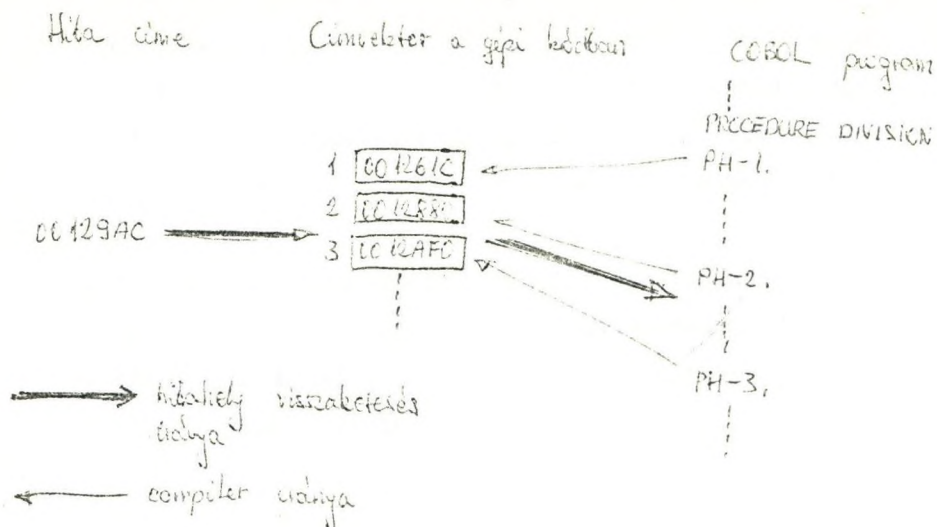 Hiba címe
Címvektor a gépi kódban
COBOL program
PROCEDURE DIVISION
1 001261C
PH-1.
2
00129AC
3 0012AF0
PH-2.
PH-3.
hibahely visszakeresés
iránya
compiler iránya